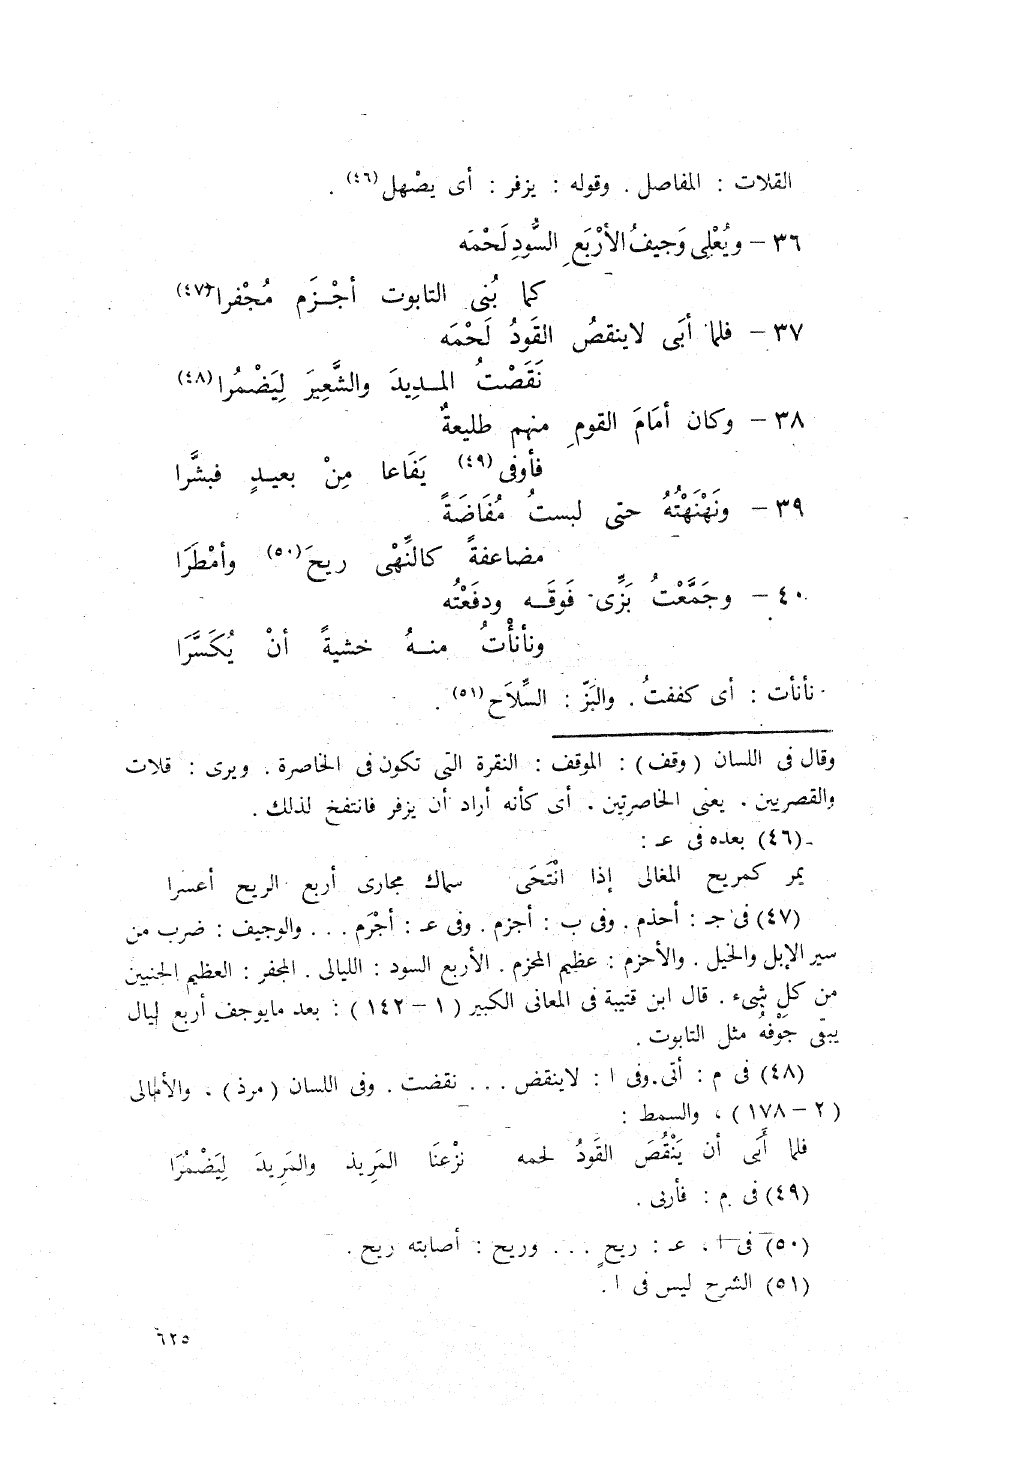 القلات : المفاصل . وقوله : يزفر : أى يصْهل(٤٦) .
٣٦ – ويُعْلِى وَجيفُ الأرْبَعِ السُّودِ لَحْمَه
كما بُنى التابوت أجْـزَم مُجْفرا(٤٧)
٣٧ – فلما أبَى لاينقصُ القَودُ لَحْمَه
نَقَصْتُ المـديدَ والشَّعِيرَ لِيَضْمُرا(٤٨)
٣٨ – وكان أمَامَ القومِ منهم طليعةٌ
فأوفى(٤٩) يَفَاعا مِنْ بعيـدٍ فبشَّرا
٣٩ – ونَهْنَهْتُهُ حتى لبستُ مُفَاضَةً
مضاعفةً كالنِّهْى ريحَ(٥٠) وأمْطَرَا
٤٠ – وجَمَّعْتُ بَزِّى فَوقَـه ودفَعْتُه
ونأنأْتُ منـهُ خشيةً أنْ يُكَسَّرَا
نأنأت : أى كففتُ . والبَزّ : السِّلاَح(٥١) .
وقال فى اللسان ( وقف ) : الموقف : النقرة التى تكون فى الخاصرة . ويرى : قلات
والقصريين . يعنى الخاصرتين . أى كأنه أراد أن يزفر فانتفخ لذلك .
(٤٦) بعده فى عـ :
يمر كمريح المغالى إذا انْتَحَى سماك مجارى أربع الريح أعسرا
(٤٧) فى جـ : أحذم . وفى ب : أجزم . وفى عـ : أجْرَم . . . والوجيف : ضرب من
سير الإبل والخيل . والأحزم : عظيم المحزم . الأربع السود : الليالى . المجفر : العظيم الجنبين
من كل شىء . قال ابن قتيبة فى المعانى الكبير ( ١ – ١٤٢ ) : بعد مايوجف أربع ليال
يبقى جَوْفهُ مثل التابوت .
(٤٨) فى م : أتى . وفى ا : لاينقض . . . نقضت . وفى اللسان ( مرذ ) ، والأمالى
( ٢ – ١٧٨ ) ، والسمط :
فلما أَبَى أن يَنْقُصَ القَودُ لحمه نزْعنَا المَرِيذ والمَرِيدَ لِيَضْمُرَا
(٤٩) فى م : فأربى .
(٥٠) فى ا ، عـ : ريحٍ . . . وريح : أصابته ريح .
(٥١) الشرح ليس فى ا .
٦٢٥